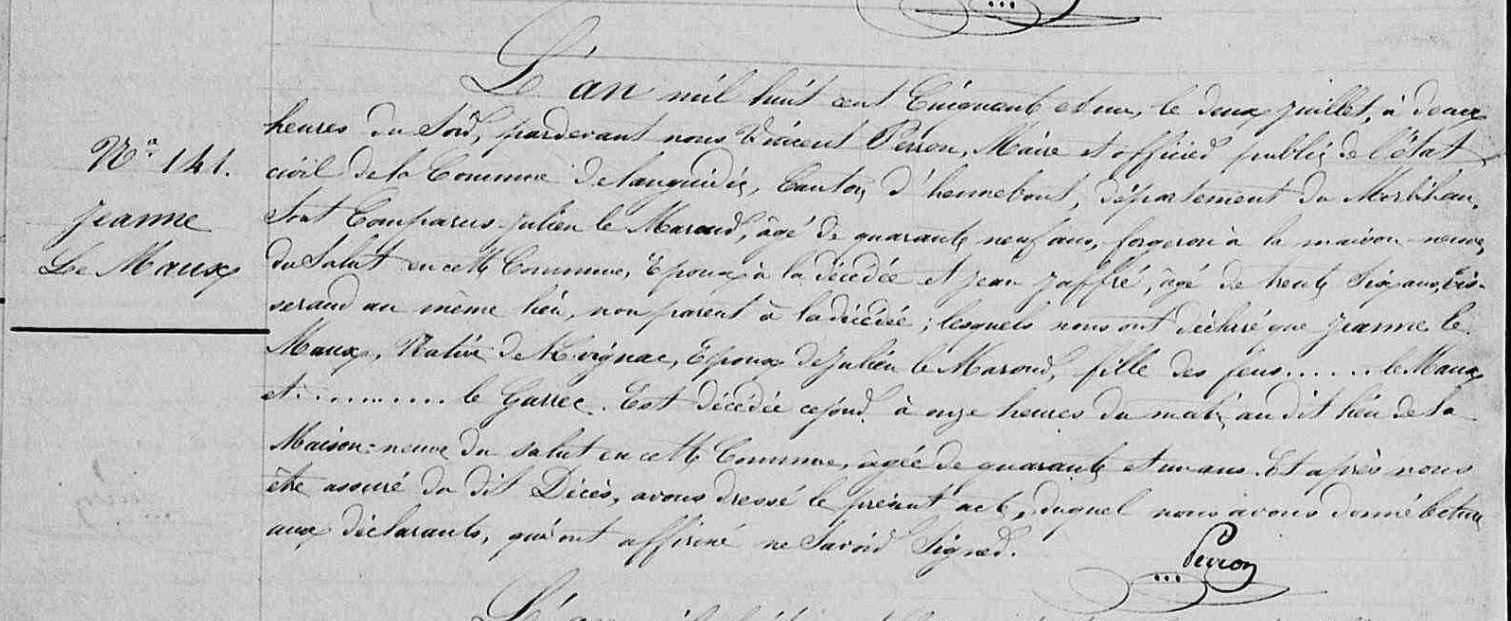 L'an mil huit cent Cinquante et un, le deux juillet, à deux
heures du Soir, pardevant nous Vincent Perron, Maire et officier public de l'état
N° 141.
civil de la Commune de languidic, Canton d'hennebont, département du Morbihan,
Jeanne
Sont Comparus julien le Maroud, âgé de quarante neuf ans, forgeron à la maison neuve
Le Maux
du Salut en cette Commune, Epoux à la décédée et jean jaffré, âgé de trente six ans, tis-
serand au même lieu, non parent à la décédée ; lesquels nous ont déclaré que jeanne le
Maux, Native de Moignac, Epouse de julien le Maroud, fille des feus ...... le Maux
et .......... le Garrec. Est décédée ce jour à onze heures du matin au dit lieu de la
Maison-neuve du salut en cette Commune, âgée de quarante et un ans. Et après nous
être assuré du dit Décès, avons dressé le présent acte, duquel nous avons donné lecture
aux déclarants, qui ont affirmé ne Savoir Signer.
Perron
L'an